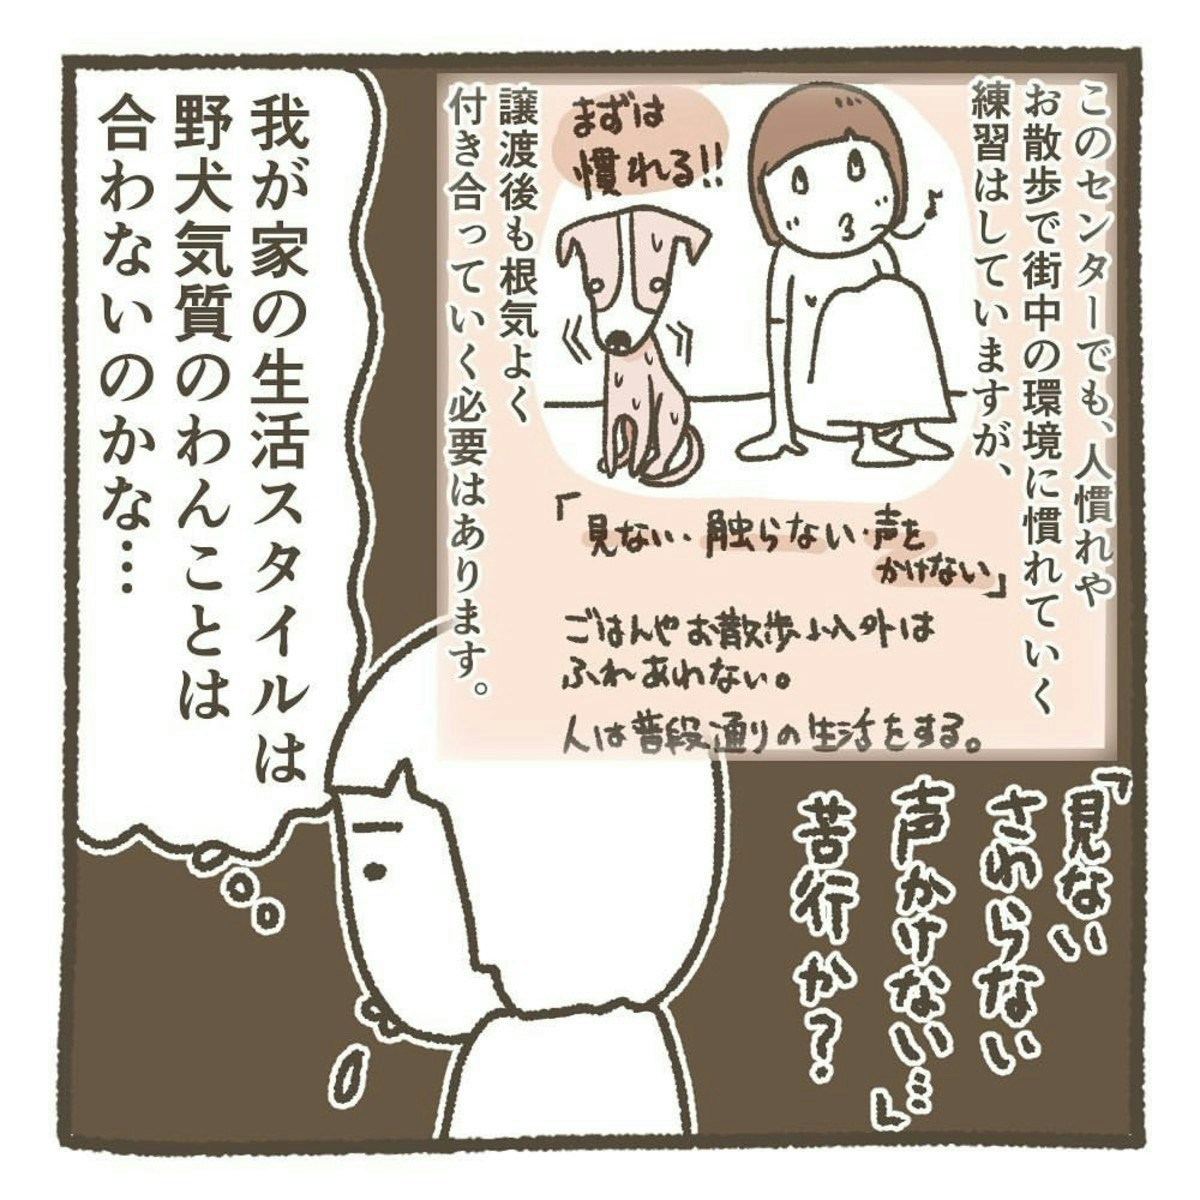 このセンターでも、人慣れや
お散歩で街中の環境に慣れていく
練習はしていますが、
まずは
慣れる!!
譲渡後も根気よく
付き合っていく必要はあります。
「見ない・触らない・声を
かけない」
ごはんやお散歩以外は
ふれあわない。
人は普段通りの生活をする。
「見ない
さわらない
声かけない…」
苦行か？
我が家の生活スタイルは
野犬気質のわんことは
合わないのかな…